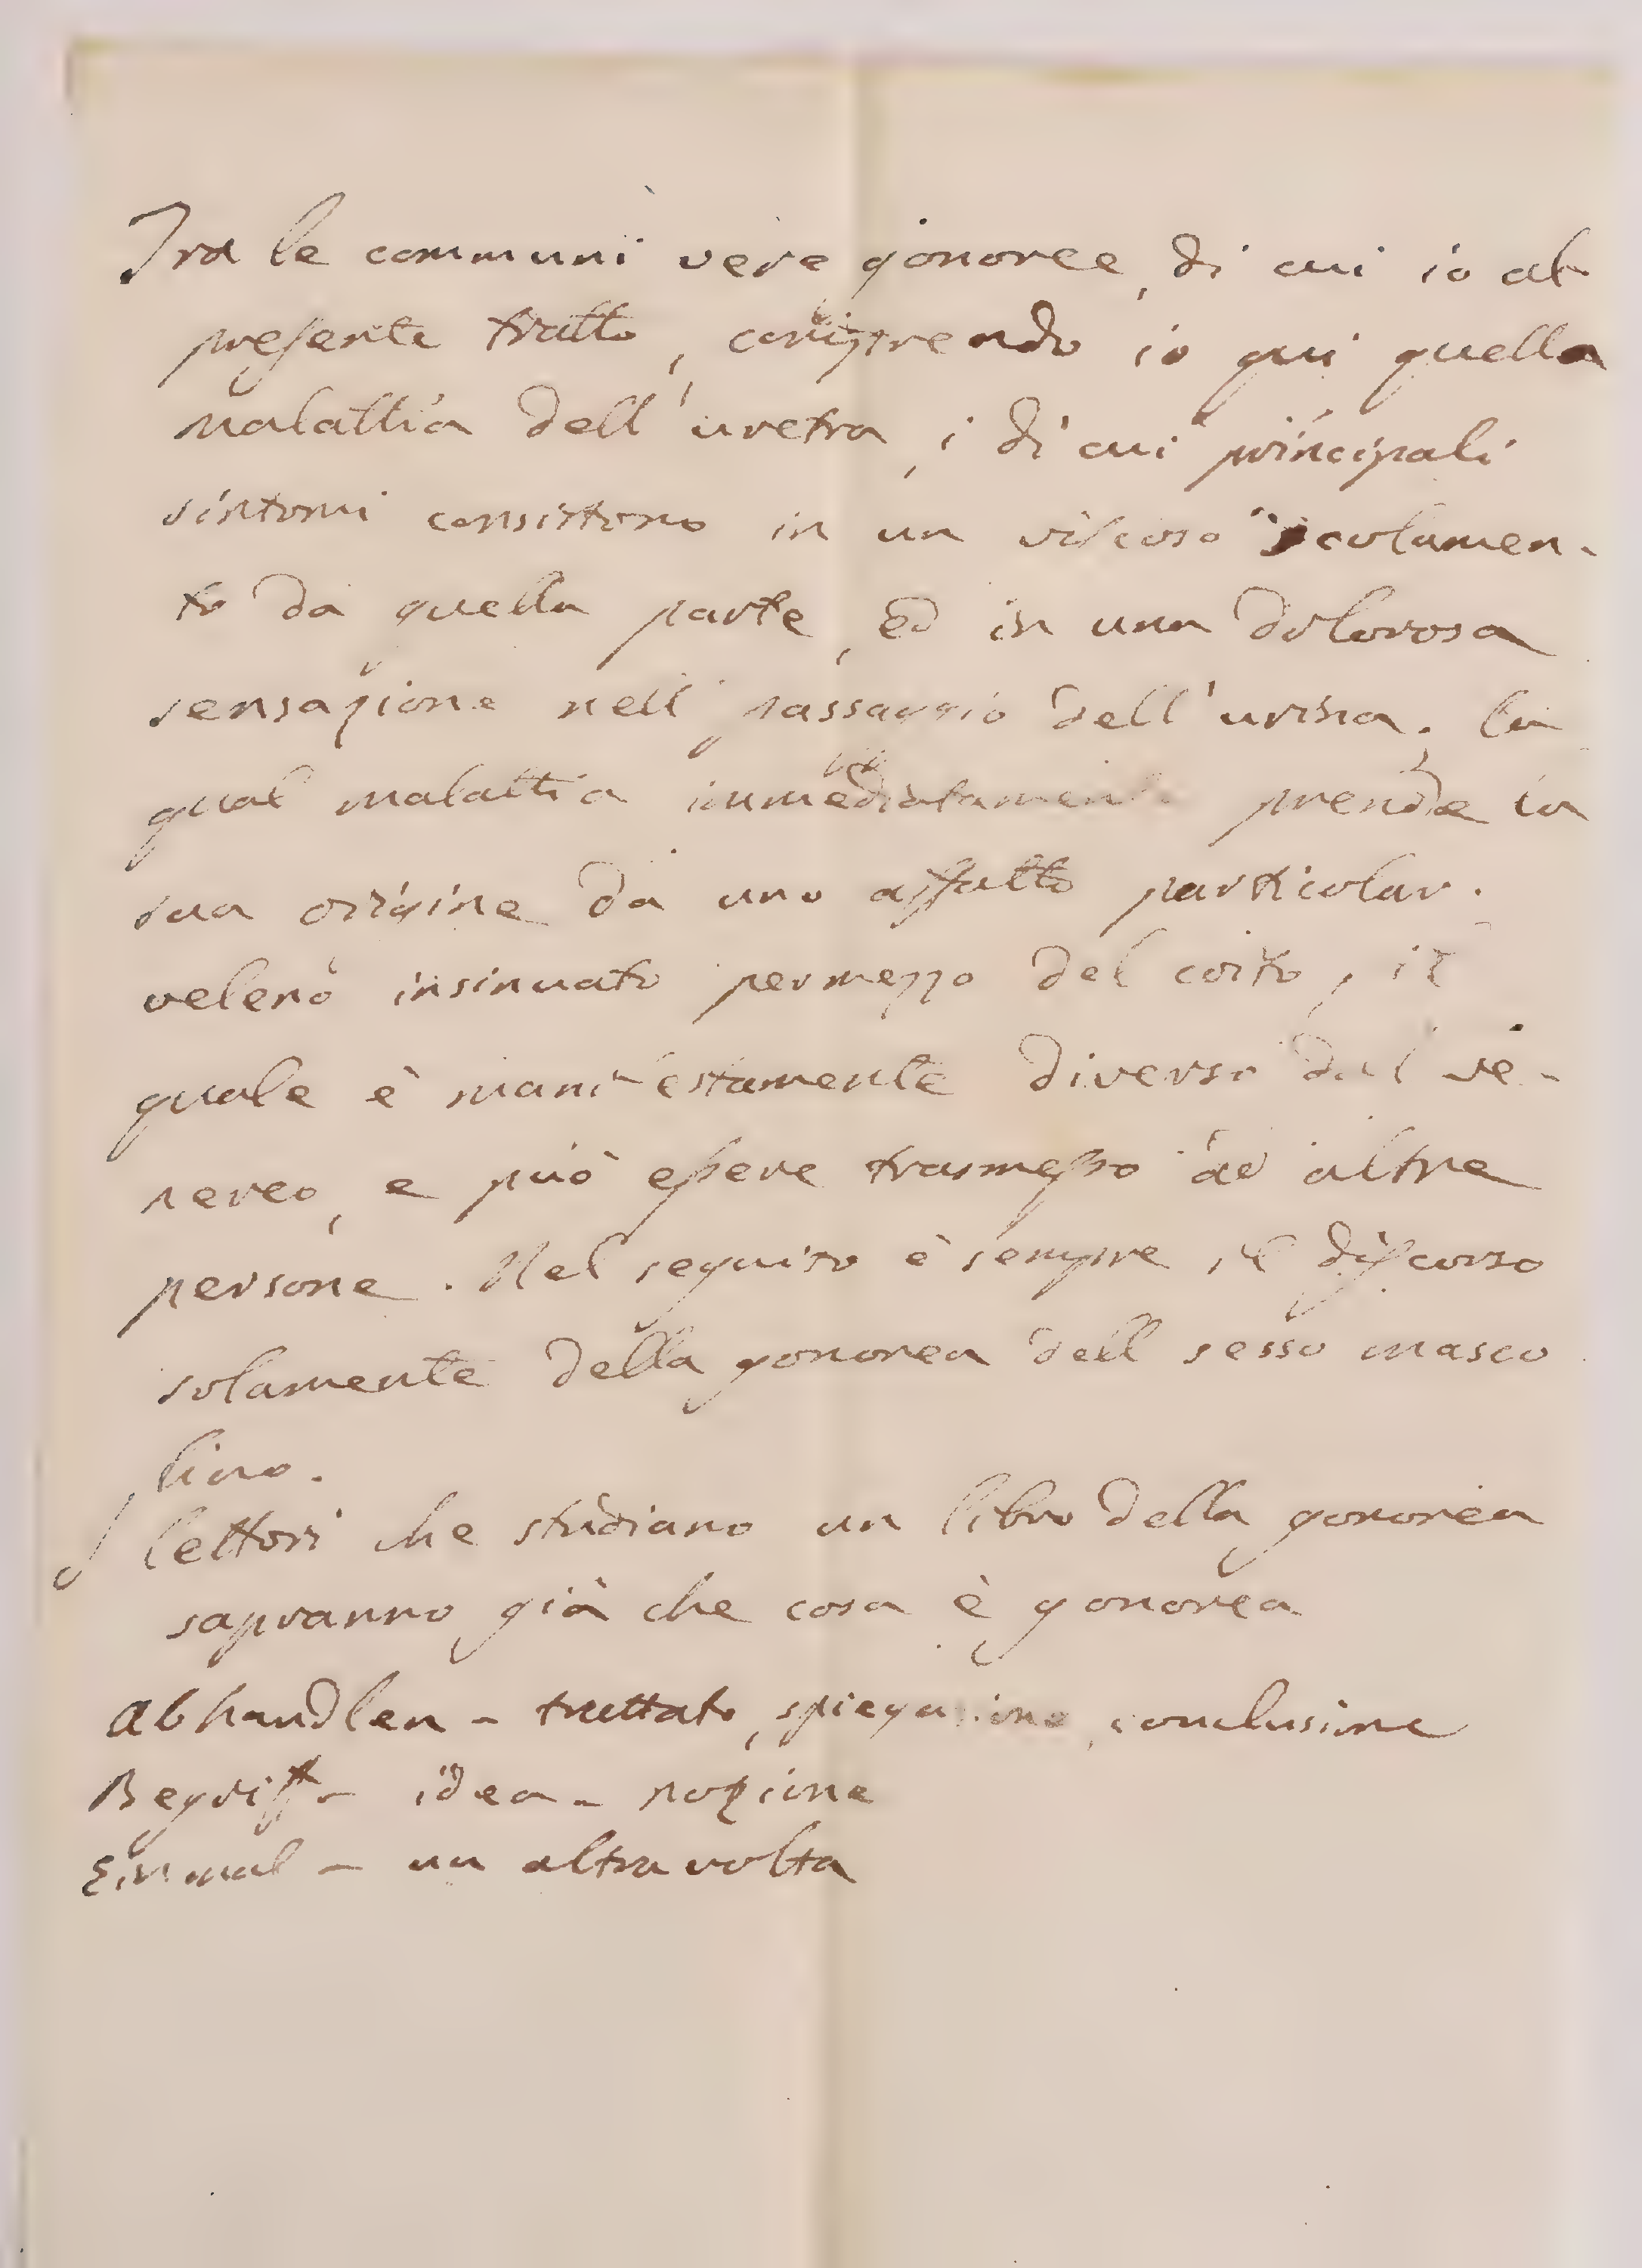 Tra le communi vere gonoree, di cui io al
presente tratto, comprendo io qui quella
malattia dell'uretra, i di cui principali
sintomi consistono in un viscoso scolamen-
to da quella parte, ed in una dolorosa
sensazione nell passaggio dell'urina. la
qual malattia immediatamente prende la
sua origine da uno affatto particolar.
veleno insinuato permezzo del coito, il
quale è manifestamente diverso dal ve-
nereo, e può essere trasmesso ad altre
persone. Nel seguito è sempre il discorso
solamente della gonorea dell sesso masco
lino.
I lettori che studiano un libro della gonorea
sapranno già che cosa è gonorea
Abhandlen - trattato, spiegazione, conclusione
Begriff - idea - nozione
Einmal - un altra volta